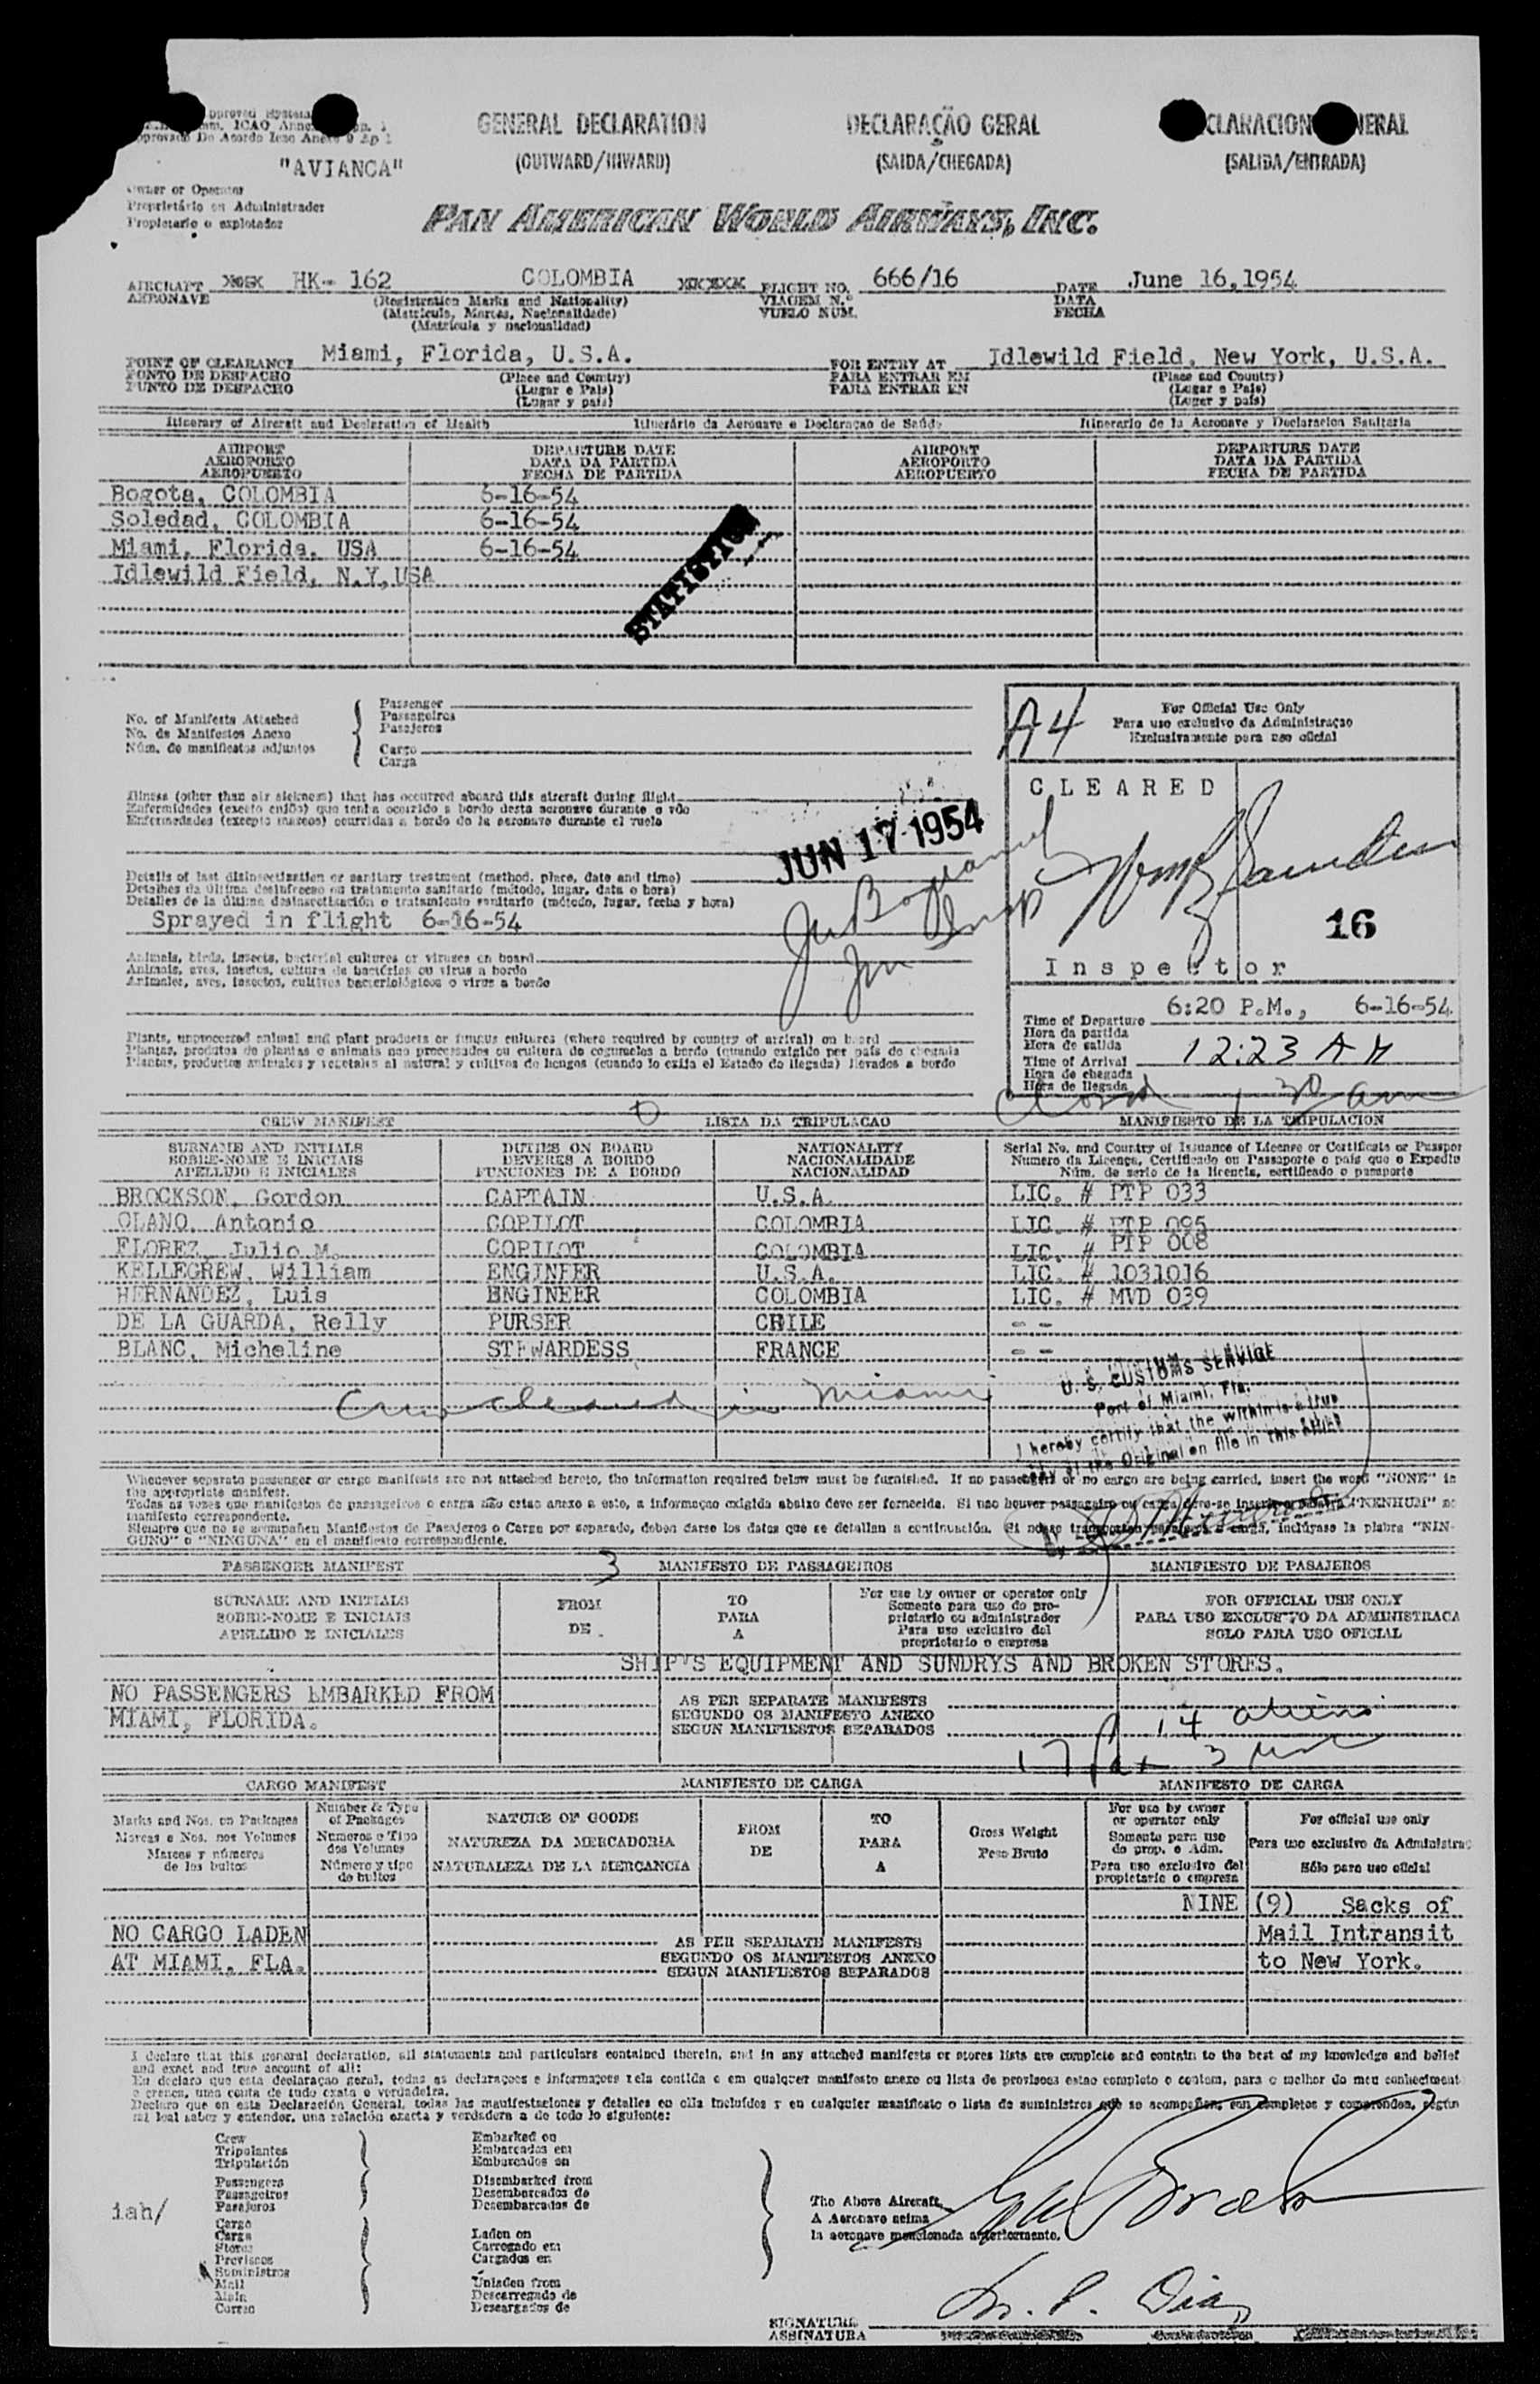 GENERAL DECLARATION DECLARAÇÃO GERAL
(OUTWARD/INWARD) (SAIDA/CHEGADA) (SALIDA/ENTRADA)
"AVIANCA"
Owner or Operator
Proprietário ou Administrador
Propietario o explotador
PAN AMERICAN WORLD AIRWAYS, INC.
AIRCRAFT HK- 162 COLOMBIA FLIGHT NO. 666/16 DATE June 16,1954
AERONAVE (Registration Marks and Nationality) VIAGEM N.º DATA
(Matricula, Marcas, Nacionalidade) VUELO NUM. FECHA
(Matricula y nacionalidad)
POINT OF CLEARANCE Miami, Florida, U.S.A. FOR ENTRY AT Idlewild Field, New York, U.S.A.
PONTO DE DESPACHO (Place and Country) PARA ENTRAR EM (Place and Country)
PUNTO DE DESPACHO (Lugar e Pais) PARA ENTRAR EN (Lugar e Pais)
(Lugar y pais) (Lugar y pais)
Itinerary of Aircraft and Declaration of Health Itinerário da Aeronave e Declaraçao de Saúde Itinerario de la Aeronave y Declaracion Sanitaria
AIRPORT DEPARTURE DATE AIRPORT DEPARTURE DATE
AEROPORTO DATA DA PARTIDA AEROPORTO DATA DA PARTIDA
AEROPUERTO FECHA DE PARTIDA AEROPUERTO FECHA DE PARTIDA
Bogota, COLOMBIA 6-16-54
Soledad, COLOMBIA 6-16-54
Miami, Florida, USA 6-16-54
Idlewild Field, N.Y,USA
No. of Manifests Attached
No. de Manifestos Anexo
Núm. de manifiestos adjuntos
Passenger
Passageiros
Pasajeros
Cargo
Carga
A4
For Official Use Only
Para uso exclusivo da Administraçao
Exclusivamente para uso oficial
CLEARED
16
Inspector
Illness (other than air sickness) that has occurred aboard this aircraft during flight
Enfermidades (exceto enjôo) que tenha ocorrido a bordo desta aeronave durante o vôo
Enfermedades (excepto mareos) ocurridas a bordo de la aeronave durante el vuelo
JUN 17 1954
Details of last disinsectization or sanitary treatment (method, place, date and time)
Detalhes da última desinfecçao ou tratamento sanitario (método, lugar, data e hora)
Detalles de la última desinsectización o tratamiento sanitario (método, lugar, fecha y hora)
Sprayed in flight 6-16-54
Animals, birds, insects, bacterial cultures or viruses on board
Animais, aves, insetos, cultura de bactérias ou virus a bordo
Animales, aves, insectos, cultivos bacteriológicos o virus a bordo
Plants, unprocessed animal and plant products or fungus cultures (where required by country of arrival) on board
Plantas, produtos de plantas e animais nao processados ou cultura de cogumelos a bordo (quando exigido por pais de chegada
Plantas, productos animales y vegetales al natural y cultivos de hongos (cuando lo exija el Estado de llegada) llevados a bordo
Time of Departure 6:20 P.M., 6-16-54
Hora da partida
Hora de salida
Time of Arrival 12:23 AM
Hora de chegada
Hora de llegada
CREW MANIFEST LISTA DA TRIPULACAO MANIFIESTO DE LA TRIPULACION
SURNAME AND INITIALS DUTIES ON BOARD NATIONALITY Serial No. and Country of Issuance of License or Certificate or Passpor
SOBRE-NOME E INICIAIS DEVERES A BORDO NACIONALIDADE Numero da Licença, Certificado ou Passaporte o pais que o Expediu
APELLIDO E INICIALES FUNCIONES DE A BORDO NACIONALIDAD Núm. de serie de la licencia, certificado o pasaporte
BROCKSON, Gordon CAPTAIN U.S.A. LIC. # PTP 033
OLANO, Antonio COPILOT COLOMBIA LIC. # PTP 095
FLOREZ, Julio M. COPILOT COLOMBIA LIC. # PTP 008
KELLEGREW, William ENGINEER U.S.A. LIC. # 1031016
HERNANDEZ, Luis ENGINEER COLOMBIA LIC. # MVD 039
DE LA GUARDA, Relly PURSER CHILE - -
BLANC, Micheline STEWARDESS FRANCE - -
Crew cleared in Miami
U. S. CUSTOMS SERVICE
Port of Miami, Fla.
I hereby certify that the within is a true
copy of the Original on file in this office
Whenever separate passenger or cargo manifests are not attached hereto, the information required below must be furnished. If no passengers or no cargo are being carried, insert the word "NONE" in
the appropriate manifest.
Todas as vezes que manifestos de passageiros o carga não estao anexo a este, a informaçao exigida abaixo deve ser fornecida. Si nao houver passageiro ou carga deve-se inserir a palavra "NENHUM" no
manifesto correspondente.
Siempre que no se acompañen Manifiestos de Pasajeros o Carga por separado, deben darse los datos que se detallan a continuación. Si no se transportan pasajeros o carga, inclúyase la plabra "NIN-
GUNO" o "NINGUNA" en el manifiesto correspondiente.
PASSENGER MANIFEST 3 MANIFESTO DE PASSAGEIROS MANIFIESTO DE PASAJEROS
SURNAME AND INITIALS FROM TO For use by owner or operator only FOR OFFICIAL USE ONLY
SOBRE-NOME E INICIAIS PARA Somente para uso do pro- PARA USO EXCLUSIVO DA ADMINISTRACA
APELLIDO E INICIALES DE A prietario ou administrador SOLO PARA USO OFICIAL
Para uso exclusivo del
propietario o empresa
SHIP'S EQUIPMENT AND SUNDRYS AND BROKEN STORES.
NO PASSENGERS EMBARKED FROM AS PER SEPARATE MANIFESTS
MIAMI, FLORIDA. SEGUNDO OS MANIFESTO ANEXO
SEGUN MANIFIESTOS SEPARADOS
14 aliens
17 3
CARGO MANIFEST MANIFIESTO DE CARGA MANIFESTO DE CARGA
Marks and Nos. on Packages Number & Type of Packages NATURE OF GOODS FROM TO Gross Weight For use by owner or operator only For official use only
Marcas e Nos. nos Volumes Numeros e Tipo dos Volumes NATUREZA DA MERCADORIA DE PARA Peso Bruto Somente para uso do prop. e Adm. Para uso exclusivo da Administrac
Marcas y números de los bultos Número y tipo de bultos NATURALEZA DE LA MERCANCIA A Para uso exclusivo del propietario o empresa Sólo para uso oficial
NINE (9) Sacks of
NO CARGO LADEN AS PER SEPARATE MANIFESTS Mail Intransit
AT MIAMI, FLA. SEGUNDO OS MANIFESTOS ANEXO to New York.
SEGUN MANIFIESTOS SEPARADOS
I declare that this general declaration, all statements and particulars contained therein, and in any attached manifests or stores lists are complete and contain to the best of my knowledge and belief
and exact and true account of all:
Eu declaro que esta declaraçao geral, todas as declaraçoes e informaçoes nela contida e em qualquer manifesto anexo ou lista de provisoes estao completo e contem, para o melhor do meu conheciment
e crença, uma conta de tudo exata e verdadeira.
Declaro que en esta Declaración General, todas las manifestaciones y detalles en ella incluídos y en cualquier manifiesto o lista de suministros que se acompañen, son completos y comprenden, según
mi leal saber y entender, una relación exacta y verdadera a de todo lo siguiente:
Crew Embarked on
Tripulantes Embarcados em
Tripulación Embarcados en
Passengers Disembarked from
Passageiros Desembarcados de
Pasajeros Desembarcados de
iah/
Cargo
Carga Laden on
Stores Carregado em
Provisoes Cargados en
Suministros
Mail Unladen from
Mala Descarregado de
Correo Descargados de
The Above Aircraft.
A Aeronave acima
la aeronave mencionada anteriormente.
SIGNATURE
ASSINATURA
STATISTICS